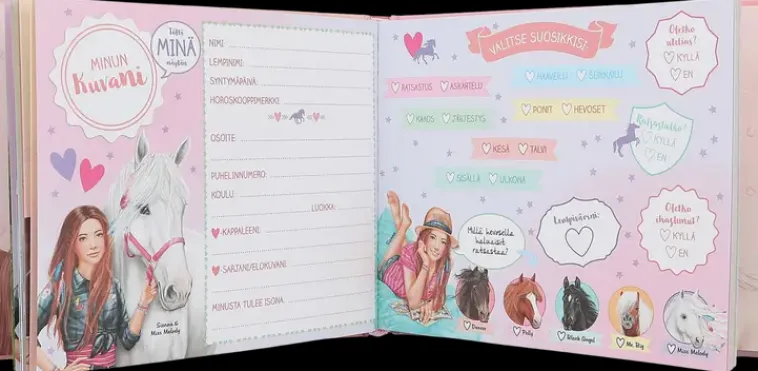 MINUN
Kuvani
Tältä
MINÄ
näytän
NIMI:
LEMPINIMI:
SYNTYMÄPÄIVÄ:
HOROSKOOPPIMERKKI:
OSOITE:
PUHELINNUMERO:
KOULU:
LUOKKA:
-KAPPALEENI:
-SARJANI/ELOKUVANI:
MINUSTA TULEE ISONA:
Sienna &
Miss Melody
VALITSE SUOSIKKISI
RATSASTUS ASKARTELU
SEIKKAILU
KAAOS JÄRJESTYS
PONIT HEVOSET
KESÄ TALVI
SISÄLLÄ ULKONA
Oletko
utelias?
KYLLÄ
EN
Ratsastatko?
KYLLÄ
EN
Oletko
KYLLÄ
EN
Millä hevosella
haluaisit
ratsastaa?
Lempivärini:
Polly
Black Angel
Mr. Big
Miss Melody